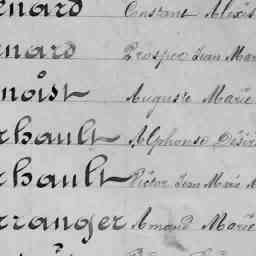 enard Constant Alexis
enard Prosper Jean Mar
noist Auguste Marie
rhault Alphonse Désir
rhault Victor Jean Marie M
rranger Amand Marie